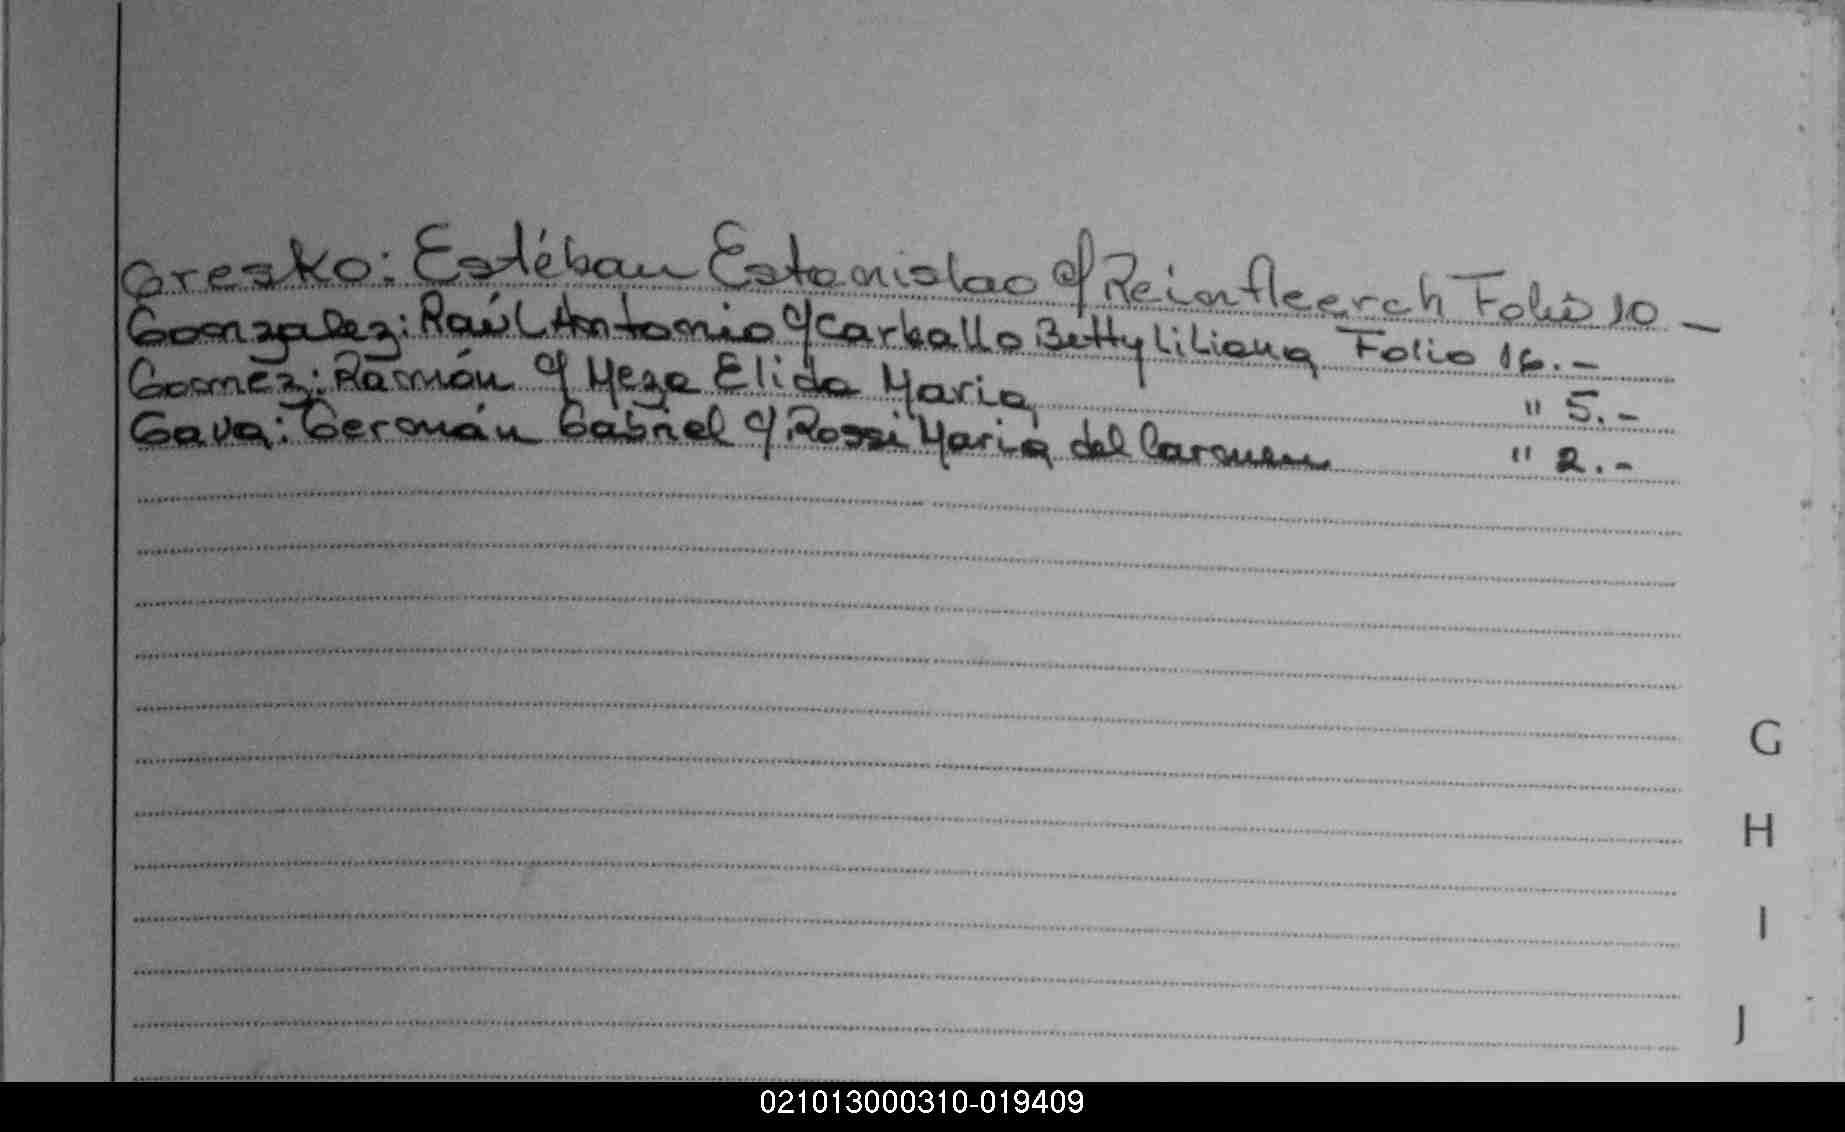 Gresko: Estéban Estanislao c/ Reinfleerch Folio 10 -
Gonzalez: Raúl Antonio c/ Carballo Betty Liliana Folio 16.-
Gomez: Ramón c/ Meza Elida Maria " 5.-
Gava: Germán Gabriel c/ Rossi Maria del Carmen " 2.-
G
H
I
J
021013000310-019409